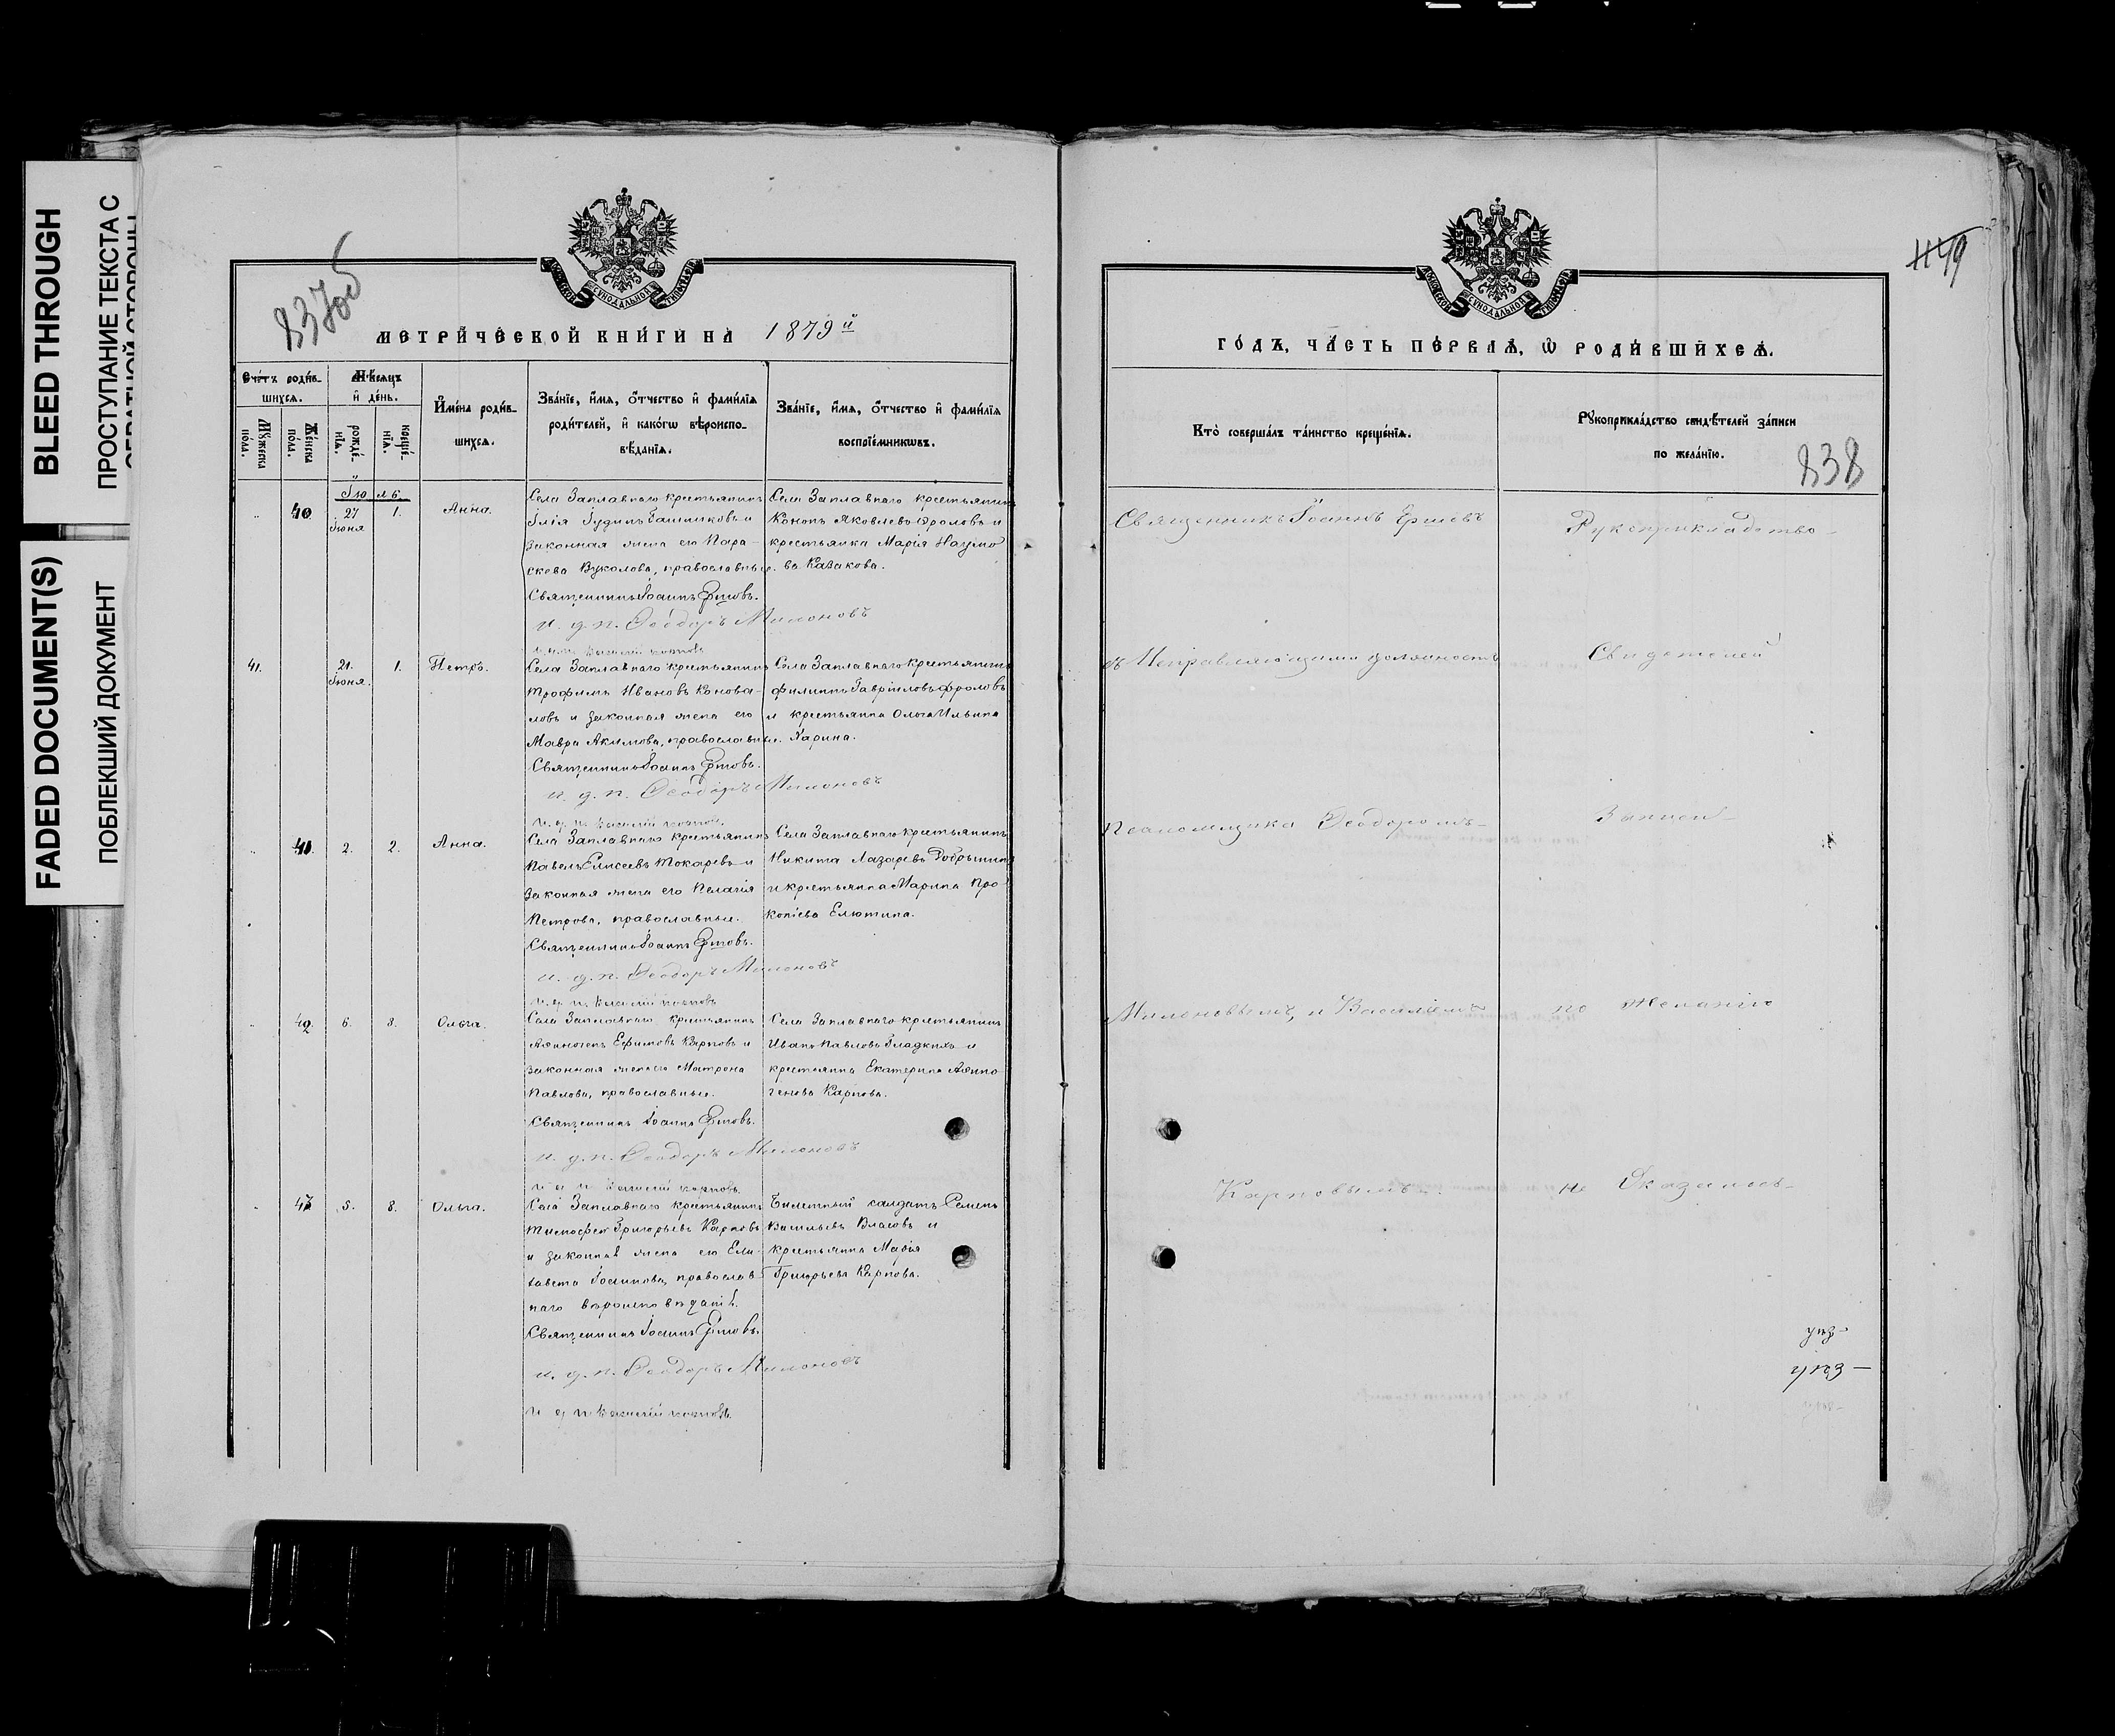 BLEED THROUGH
ПРОСТУПАНИЕ ТЕКСТА С
ОБРАТНОЙ СТОРОНЫ
FADED DOCUMENT(S)
ПОБЛЕКШИЙ ДОКУМЕНТ
837об
МЕТРИЧЕСКОЙ КНИГИ НА 1879й
Счетъ родив-
шихся.
Мужеска
пола.
Женска
пола.
Мѣсяцъ
и день.
рожде-
нія.
креще-
нія.
Имена родив-
шихся.
Званіе, имя, отчество и фамилія
родителей, и какогѡ вѣроиспо-
вѣданія.
Званіе, имя, отчество и фамилія
воспріемниковъ.
Іюль
40. 27 Іюня 1. Анна.
Села Заплавнаго крестьянинъ
Илія Іудинъ и
законная жена его Пара-
скева Вуколова, православные.
Священникъ Іоаннъ Ершовъ.
и. д. п. Ѳеодоръ Милоновъ
и. д. п. Василій Карповъ
Села Заплавнаго крестьянинъ
Кононъ Яковлевъ Фроловъ и
крестьянка Марія Наумо
ва Казакова.
41. 21. Іюня. 1. Петръ.
Села Заплавнаго крестьянинъ
Трофимъ Ивановъ Конова-
ловъ и законная жена его
Мавра Акимова, православные.
Священникъ Іоаннъ Ершовъ.
и. д. п. Ѳеодоръ Милоновъ
и. д. п. Василій Карповъ.
Села Заплавнаго крестьянинъ
Филиппъ Гавріиловъ Фроловъ
и крестьянка Ольга Ильина
Харина.
41. 2. 2. Анна.
Села Заплавнаго крестьянинъ
Павелъ Елисеевъ Токаревъ и
законная жена его Пелагія
Петрова, православные.
Священникъ Іоаннъ Ершовъ.
и. д. п. Ѳеодоръ Милоновъ
и. д. п. Василій Карповъ
Села Заплавнаго крестьянинъ
Никита Лазаревъ Добрынинъ
и крестьянка Марина Про-
копіева Елютина.
42. 6. 8. Ольга.
Села Заплавнаго крестьянинъ
Аѳиногенъ Ефимовъ Карповъ и
законная жена его Матрона
Павлова, православные.
Священникъ Іоаннъ Ершовъ.
и. д. п. Ѳеодоръ Милоновъ
и. д. п. Василій Карповъ.
Села Заплавнаго крестьянинъ
Иванъ Павловъ Гладкихъ и
крестьянка Екатерина Аѳино
генова Карпова.
43 5. 8. Ольга.
Села Заплавнаго крестьянинъ
Тимофей Григорьевъ Карповъ
и законная жена его Ели-
завета Іоаннова, православ
наго вѣроисповѣданія.
Священникъ Іоаннъ Ершовъ.
и. д. п. Ѳеодоръ Милоновъ
и д п Василій Карповъ.
Билетный салдатъ Семенъ
Васильевъ Власовъ и
крестьянка Марія
Григорьева Карпова.
ГОДЪ, ЧАСТЬ ПЕРВАЯ, Ѡ РОДИВШИХСЯ.
Кто совершалъ таинство крещенія.
Рукоприкладство свидѣтелей записи
по желанію.
838
Священникъ Іоаннъ Ершовъ
съ Исправляющими должность
Псаломщика Ѳеодоромъ
Милоновымъ, и Василіемъ
Карповымъ.
Рукоприкладство
Свидетелей
Записи
по желанію
не оказалось